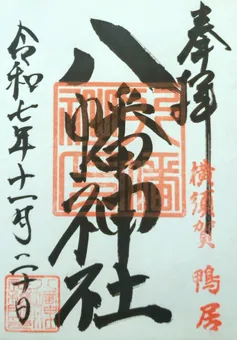 奉拝
横須賀 鴨居
八幡神社
令和七年十一月二十日